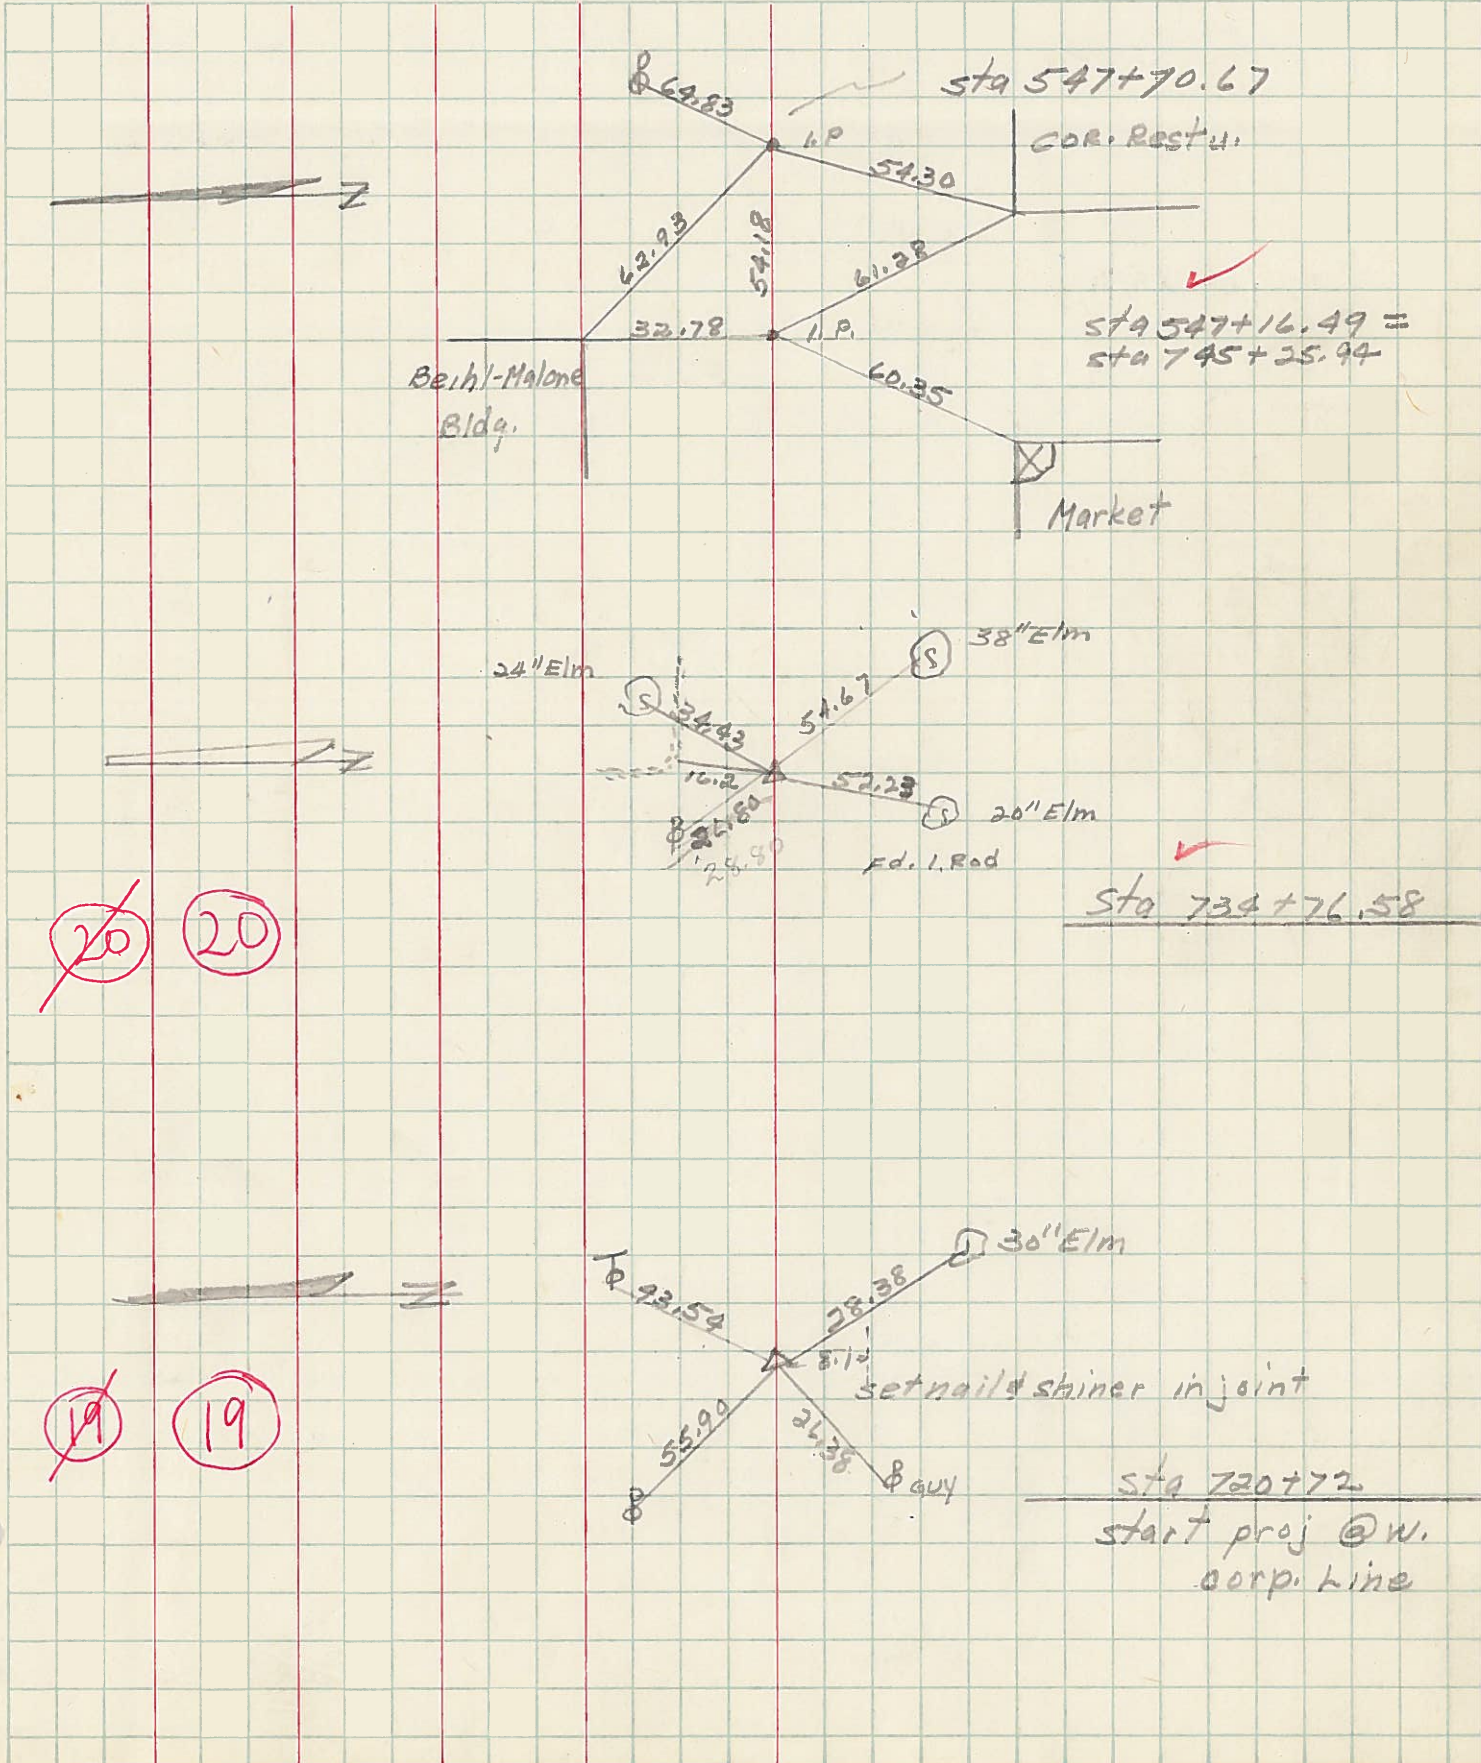 sta 547+70.67
64.83
I.P.
COR. Restu.
54.30
N
62.93
54.18
61.28
32.78
I.P.
sta 547+16.49 =
sta 745+25.94
Beihl-Malone
Bldg.
60.35
Market
38" Elm
24" Elm
S
S
34.43
54.67
N
16.2
52.23
S
20" Elm
28.80
Fd. I. Rod
Sta 734+76.58
20
20
30" Elm
28.38
N
8.1
set nail & shiner in joint
19
19
55.90
Guy
sta 720+72
start proj @ W.
corp. Line